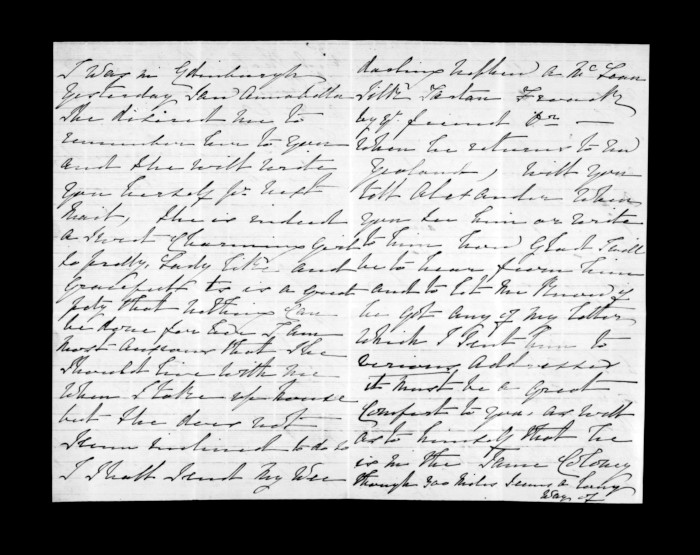 I was in Edinburgh
Yesterday Saw Annabella
She desired me to
remember her to you
and she will write
you herself pr next
Mail, She is indeed
a sweet Charming Girl
so pretty, Lady like and
Gracefull ts is a great
pity that nothing Can
be done for her I am
most anxious that she
Should live with me
When I take up house
but She does not
Seem inclined to do so
I Shall Send My Wee
darling Nephew a McLean
Silk Tartan Frock
by yr friend
When he returns to New
Zealand, will you
tell Alexander When
you see him or write
to him how Glad I will
be to hear from him
and to let me Know if
he got any of my letters
Which I Sent him to
various addresses
it must be a great
Comfort to you as well
as to himself that he
is in the Same Coloney
though 300 Miles Seems a long
Way of